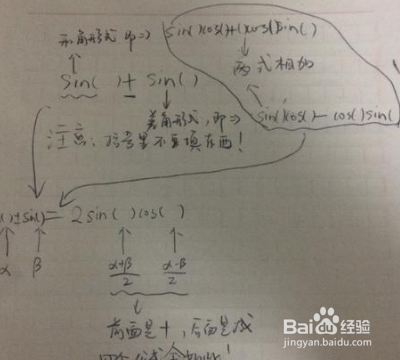 和角形式 即=> sin()cos()+cos()sin()
两式相加
sin()+sin()
差角形式,即=> sin()cos()-cos()sin(
注意:括号里不要填东西!
()±sin()=2sin()cos()
α β α+β/2 α-β/2
前面是+,后面是减
四个公式全如此!
Baidu经验
jingyan.baidu.com